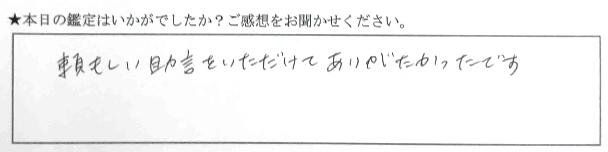 ★本日の鑑定はいかがでしたか？ご感想をお聞かせください。
頼もしい助言をいただけてありがたかったです